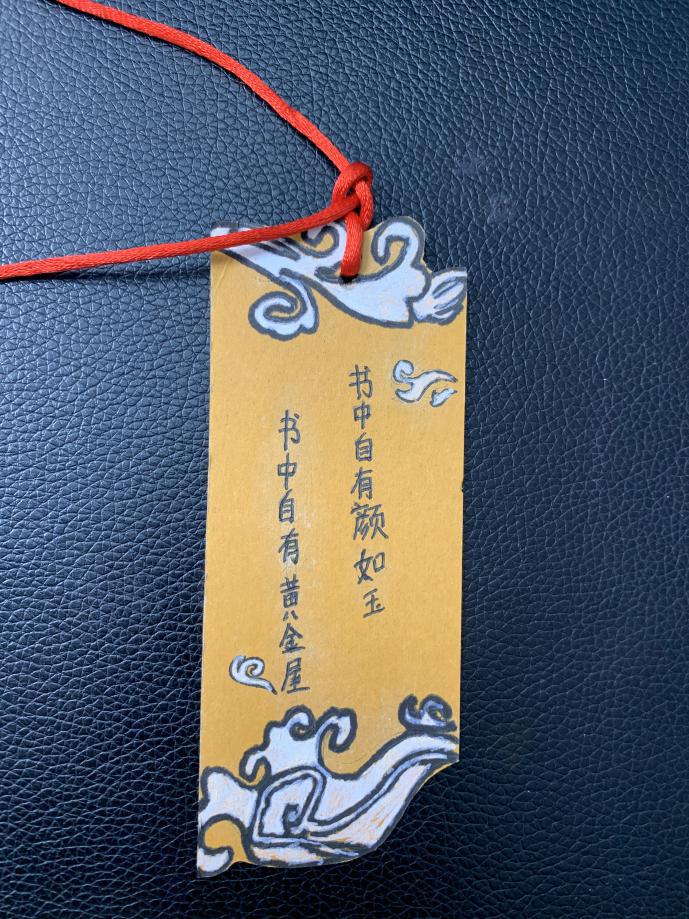 书中自有颜如玉
书中自有黄金屋